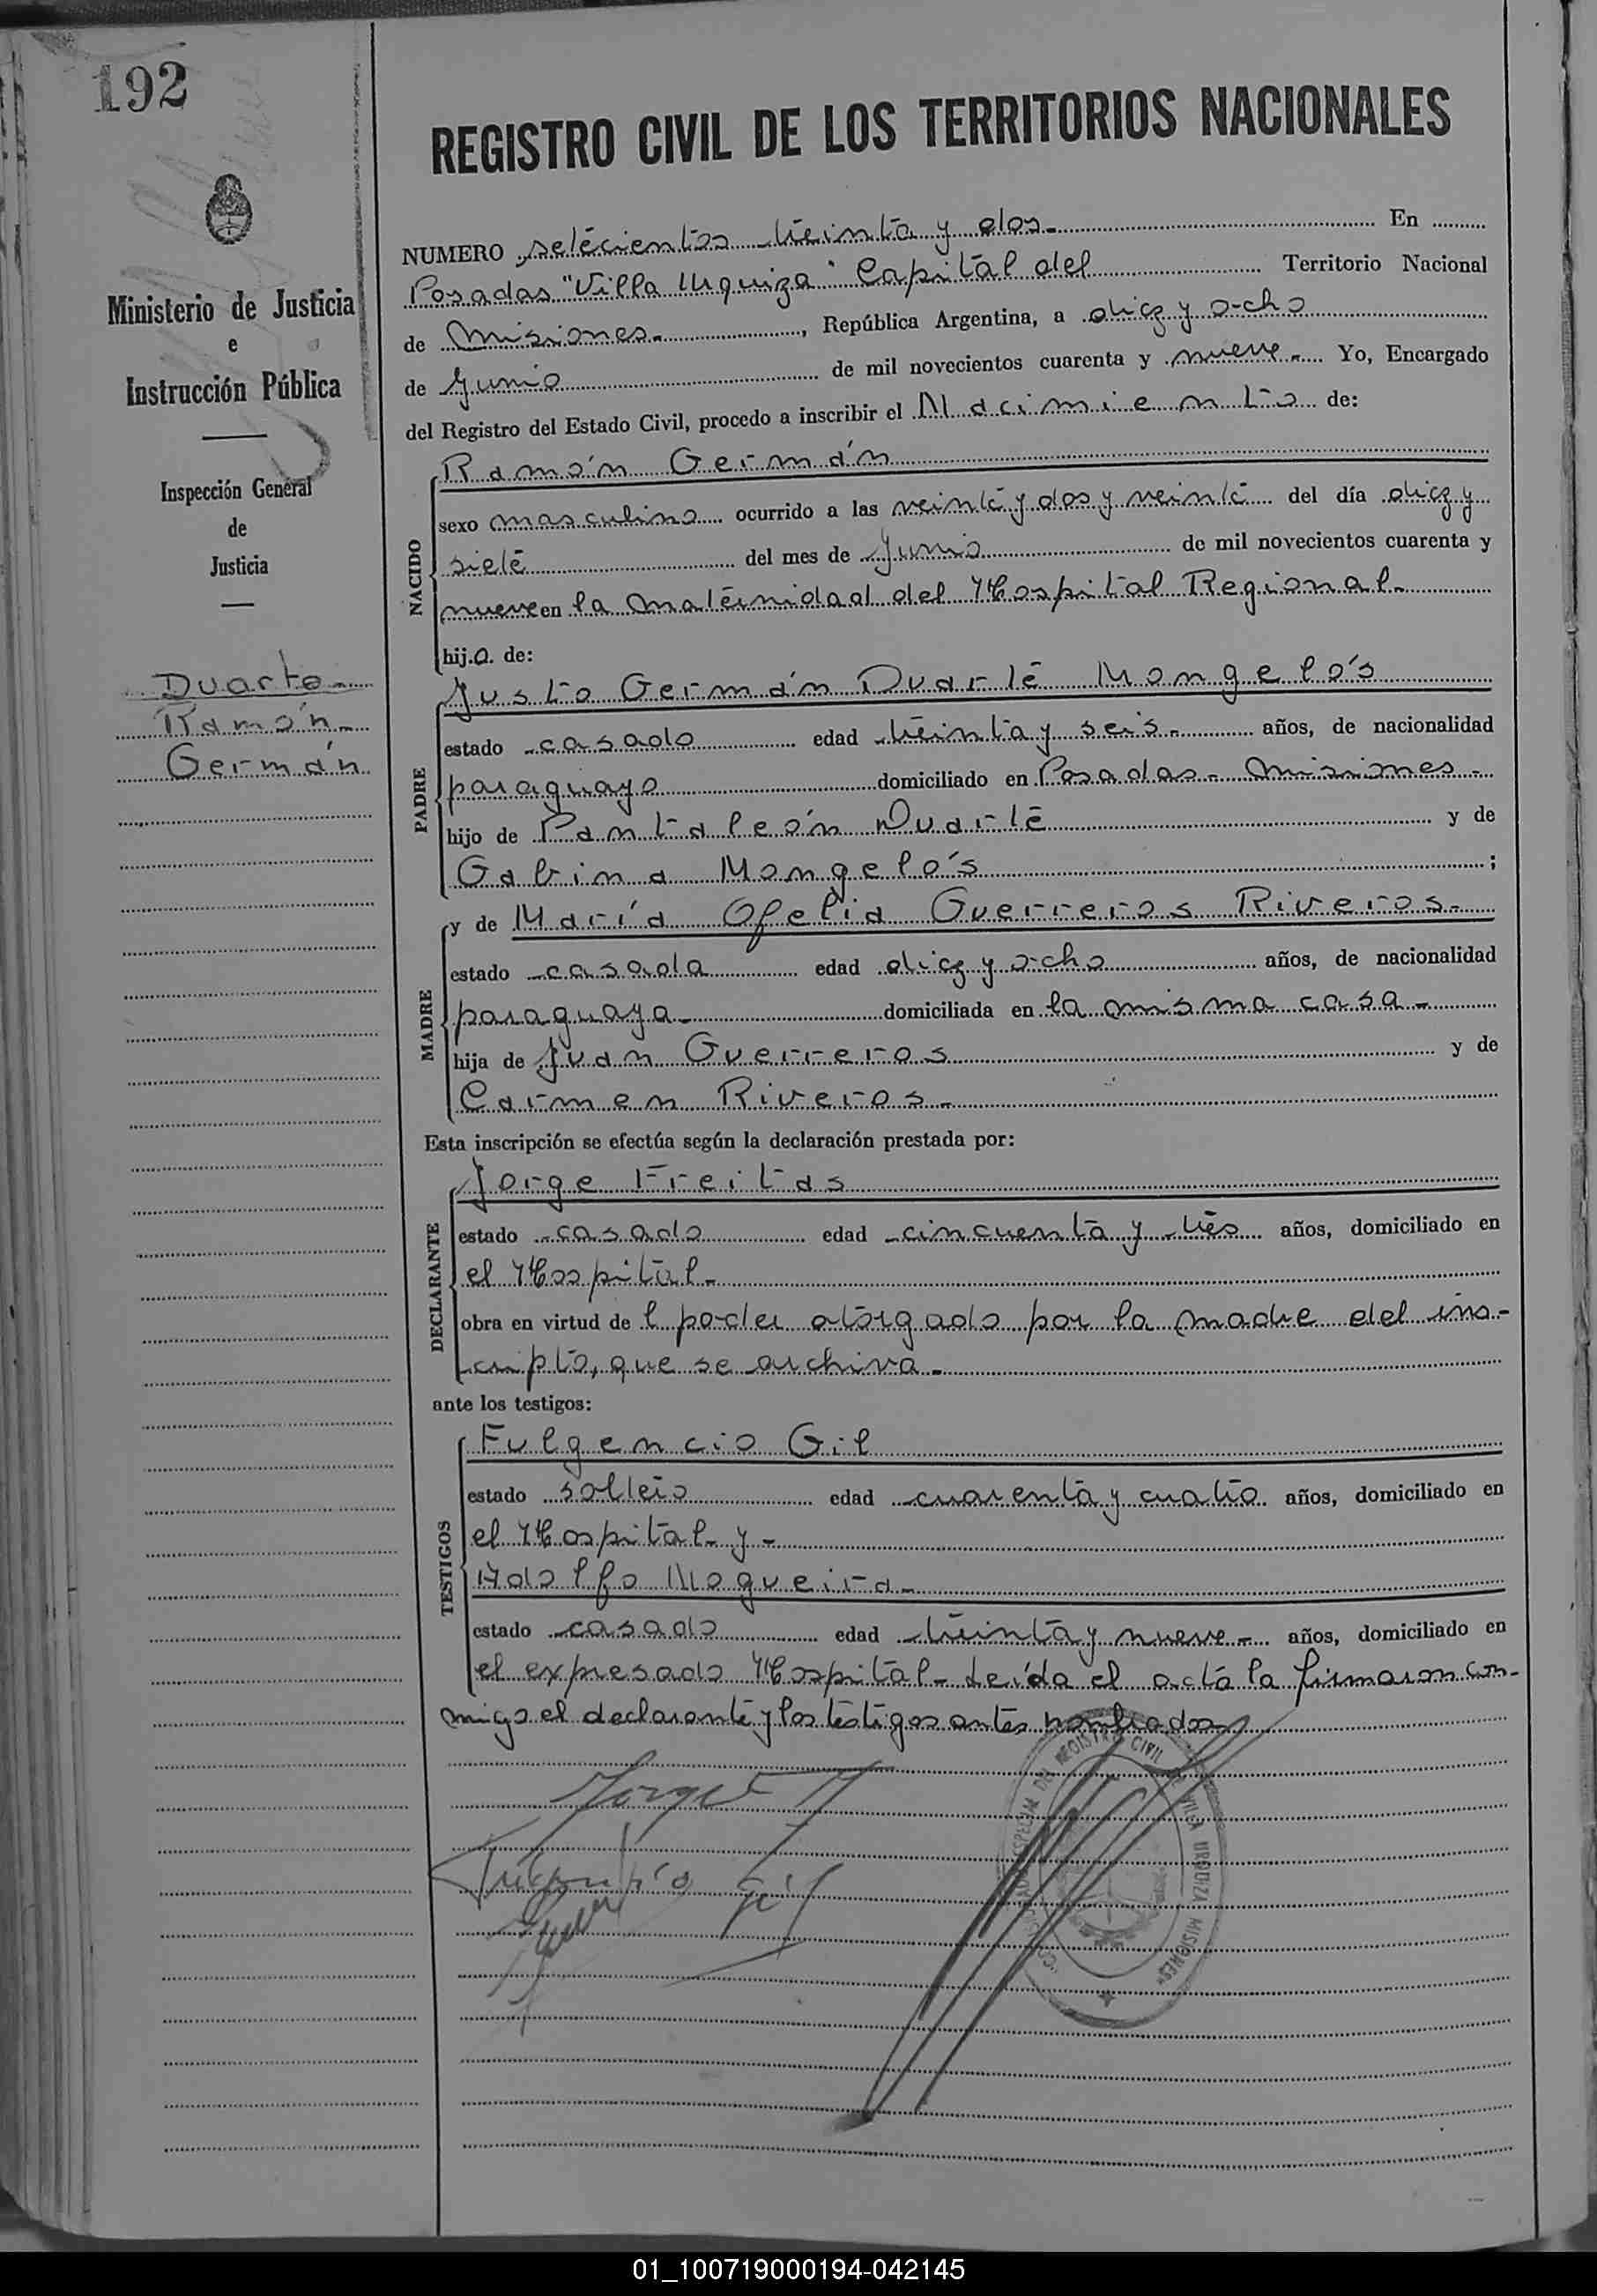 192
REGISTRO CIVIL DE LOS TERRITORIOS NACIONALES
Ministerio de Justicia
e
Instrucción Pública
Inspección General
de
Justicia
Duarte
Ramón
Germán
NUMERO setecientos treinta y dos.- En
Posadas "Villa Urquiza" Capital del Territorio Nacional
de Misiones.-, República Argentina, a diez y ocho
de Junio de mil novecientos cuarenta y nueve.- Yo, Encargado
del Registro del Estado Civil, procedo a inscribir el Nacimiento de:
NACIDO
Ramón Germán
sexo masculino ocurrido a las veinte y dos y veinte del día diez y
siete del mes de Junio de mil novecientos cuarenta y
nueve en la Maternidad del Hospital Regional.-
hijo de:
PADRE
Justo Germán Duarte Mongelós
estado casado edad treinta y seis.- años, de nacionalidad
paraguayo domiciliado en Posadas - Misiones -
hijo de Pantaleón Duarte y de
Gabina Mongelós ;
MADRE
y de María Ofelia Guerreros Riveros.-
estado casada edad diez y ocho años, de nacionalidad
paraguaya.- domiciliada en la misma casa.-
hija de Juan Guerreros y de
Carmen Riveros.-
Esta inscripción se efectúa según la declaración prestada por:
DECLARANTE
Jorge Freitas
estado casado edad cincuenta y tres años, domiciliado en
el Hospital.-
obra en virtud del poder otorgado por la madre del ins-
cripto, que se archiva.-
ante los testigos:
TESTIGOS
Fulgencio Gil
estado soltero edad cuarenta y cuatro años, domiciliado en
el Hospital y -
Adolfo Nogueira.-
estado casado edad treinta y nueve.- años, domiciliado en
el expresado Hospital.- Leída el acta la firmaron con-
migo el declarante y los testigos antes nombrados
Jorge
Fulgencio Gil
REGISTRO CIVIL
VILLA URQUIZA MISIONES
01_100719000194-042145